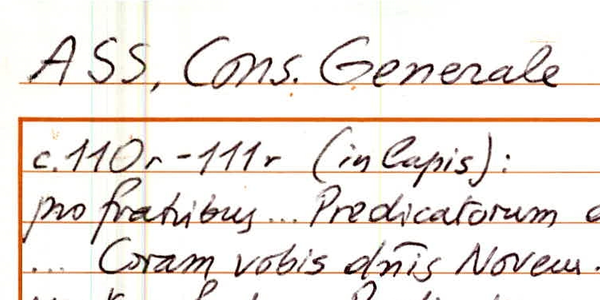 ASS, Cons. Generale
c. 110r - 111r (in lapis):
pro fratribus... Predicatorum
... Coram vobis dn̄is Novem